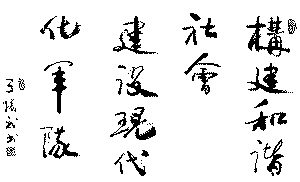 構建和諧
社會
建设現代
化军隊